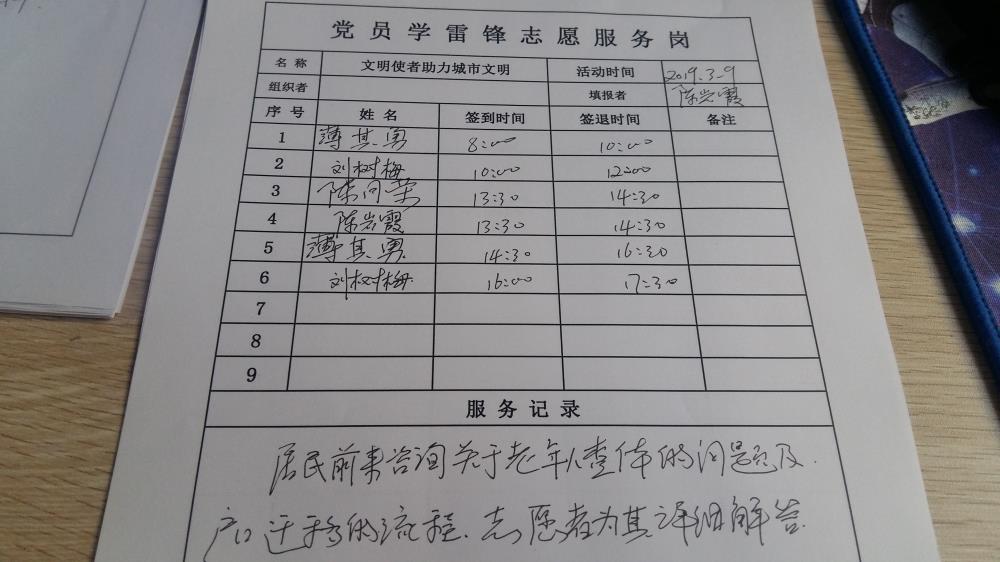 党员学雷锋志愿服务岗
名称 文明使者助力城市文明 活动时间 2019.3-9
组织者 填报者 陈岩霞
序号 姓名 签到时间 签退时间 备注
1 薄其勇 8:00 10:00
2 刘树梅 10:00 12:00
3 陈向荣 13:30 14:30
4 陈岩霞 13:30 14:30
5 薄其勇 14:30 16:30
6 刘树梅 16:00 17:30
7
8
9
服务记录
居民前来咨询关于老年人查体的问题及
户口迁移的流程.志愿者为其详细解答